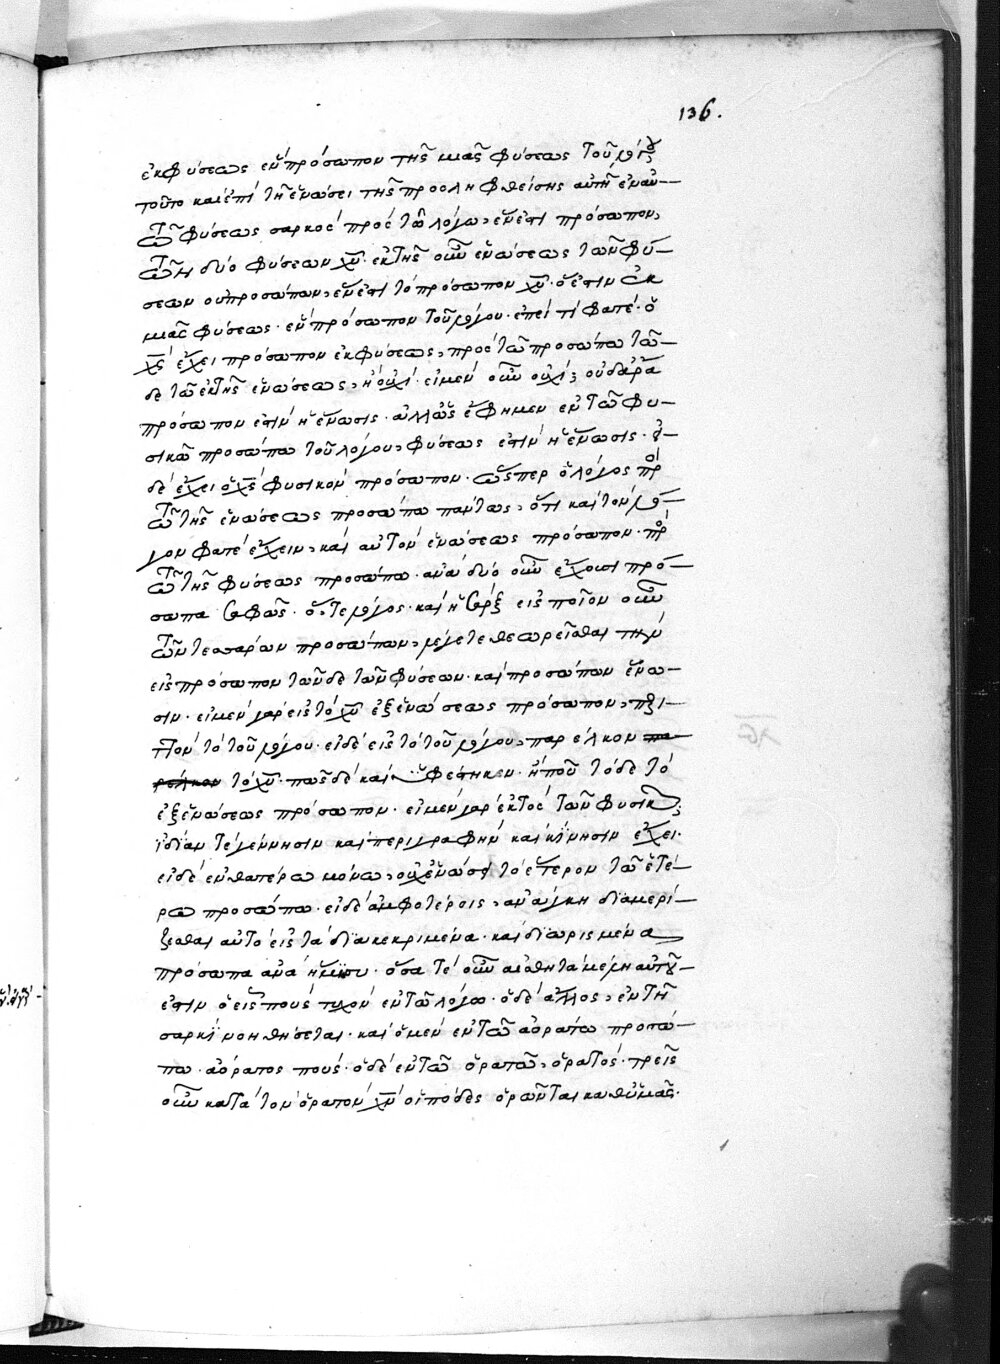 136.
ἐκ φύσεως ἓν πρόσωπον τῆς μιᾶς φύσεως τοῦ λόγου
τοῦτο καὶ ἐπὶ τῇ ἑνώσει τῆς προσληφθείσης αὐτῇ ἐναν
φύσεως σαρκὸς πρὸς τῷ λόγῳ, ἕν ἐστι πρόσωπον,
δύο φύσεων χῦ. ἐκ τῆς οὖν ἑνώσεως τῶν φύ
σεων οὐ προσώπων, ἕν ἐστι τὸ πρόσωπον χῦ. ὅ ἐστιν ἐκ
μιᾶς φύσεως. ἓν πρόσωπον τοῦ λόγου. ἐπεί τί φατέ. ὁ
χς ἔχει πρόσωπον ἐκ φύσεως, πρὸς τῷ προσώπω τῶ
δε τῶ ἐκ τῆς ἑνώσεως, ἢ οὐχί. εἰ μὲν οὖν οὐχί; οὐδ' ἄρα
πρόσωπόν ἐστιν ἡ ἕνωσις. ἀλλ' ὡς ἔφημεν ἐν τῶ φυ
σικῶ προσώπω τοῦ λόγου, φύσεως ἐστὶν ἡ ἕνωσις. εἰ
δὲ ἔχει ὁ χς φυσικὸν πρόσωπον. ὥσπερ ὁ λόγος πρὸς
τῶ τῆς ἑνώσεως προσώπω πάντως, ὅτι καὶ τὸν λό
γον φατὲ ἔχειν, καὶ αὐτὸν ἑνώσεως πρόσωπον. πρὸς
τῶ τῆς φύσεως προσώπω. ἀνὰ δύο οὖν ἔχουσι πρό
σωπα σαφῶς. ὅ,τε λόγος. καὶ ἡ σάρξ εἰς ποῖον οὖν
τῶν τεσσάρων προσώπων, λέγετε θεωρεῖσθαι τὴν
εἰς πρόσωπον τῶνδε τῶν φύσεων. καὶ προσώπων ἕνω
σιν. εἰ μὲν γὰρ εἰς τὸ χῦ ἐξ ἑνώσεως πρόσωπον,
τὸ τοῦ λόγου. εἰ δὲ εἰς τὸ τοῦ λόγου, παρεῖλκον πα
ρέλκον τὸ χῦ. πῶς δὲ καὶ ὑφέστηκεν. ἢ ποῦ τὸ δὲ τὸ
ἐξ ἑνώσεως πρόσωπον. εἰ μὲν γὰρ ἐκτὸς τῶν φυσικῶν;
ἰδίαν τὲ γέννησιν καὶ περιγραφὴν καὶ κίνησιν ἔχει.
εἰ δὲ ἐν θατέρω μόνω, οὐχ ἑνώσει τὸ ἕτερον τῶ ἑτέ
ρω προσώπω. εἰ δὲ ἀμφοτέροις, ἀνάγκη διαμερί
ζεσθαι αὐτὸ εἰς τὰ διακεκριμένα. καὶ διωρισμένα
πρόσωπα ἀνὰ ἥμισυ. ὅσα τὲ οὖν αἰσθητὰ μέρη αὐτοῦ
ἐστιν ὁ εἷς ποὺς τυχὸν ἐν τῶ λόγω. ὁ δὲ ἄλλος, ἐν τῇ
σαρκὶ νοηθήσεται. καὶ ὁ μὲν ἐν τῶ ἀοράτω προσώ
πω. ἀόρατος ποὺς. ὁ δὲ ἐν τῶ ὁρατῶ, ὁρατός. τρεῖς
οὖν κατὰ τὸν ὁρατὸν χν οἱ πόδες ὁρῶνται καθ' ὑμᾶς.